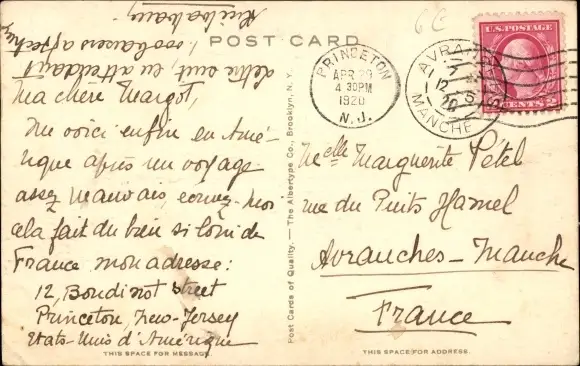 POST CARD
Ma chère Margot,
Me voici enfin en Amé-
rique après un voyage
assez mauvais, écrivez-moi
cela fait du bien si loin de
France mon adresse:
12, Boudinot Street
Princeton, New-Jersey
Etats-Unis d'Amérique
lettre suit, en attendant
1000 baisers affect
THIS SPACE FOR MESSAGE
Post Cards of Quality. — The Albertype Co., Brooklyn, N. Y.
PRINCETON
APR 29
4 30PM
1920
N.J.
AVRANCHES
12 - 5
20
MANCHE
U.S. POSTAGE
CENTS 2
Melle Marguerite Pétel
rue du Puits Hamel
Avranches - Manche
France
THIS SPACE FOR ADDRESS.